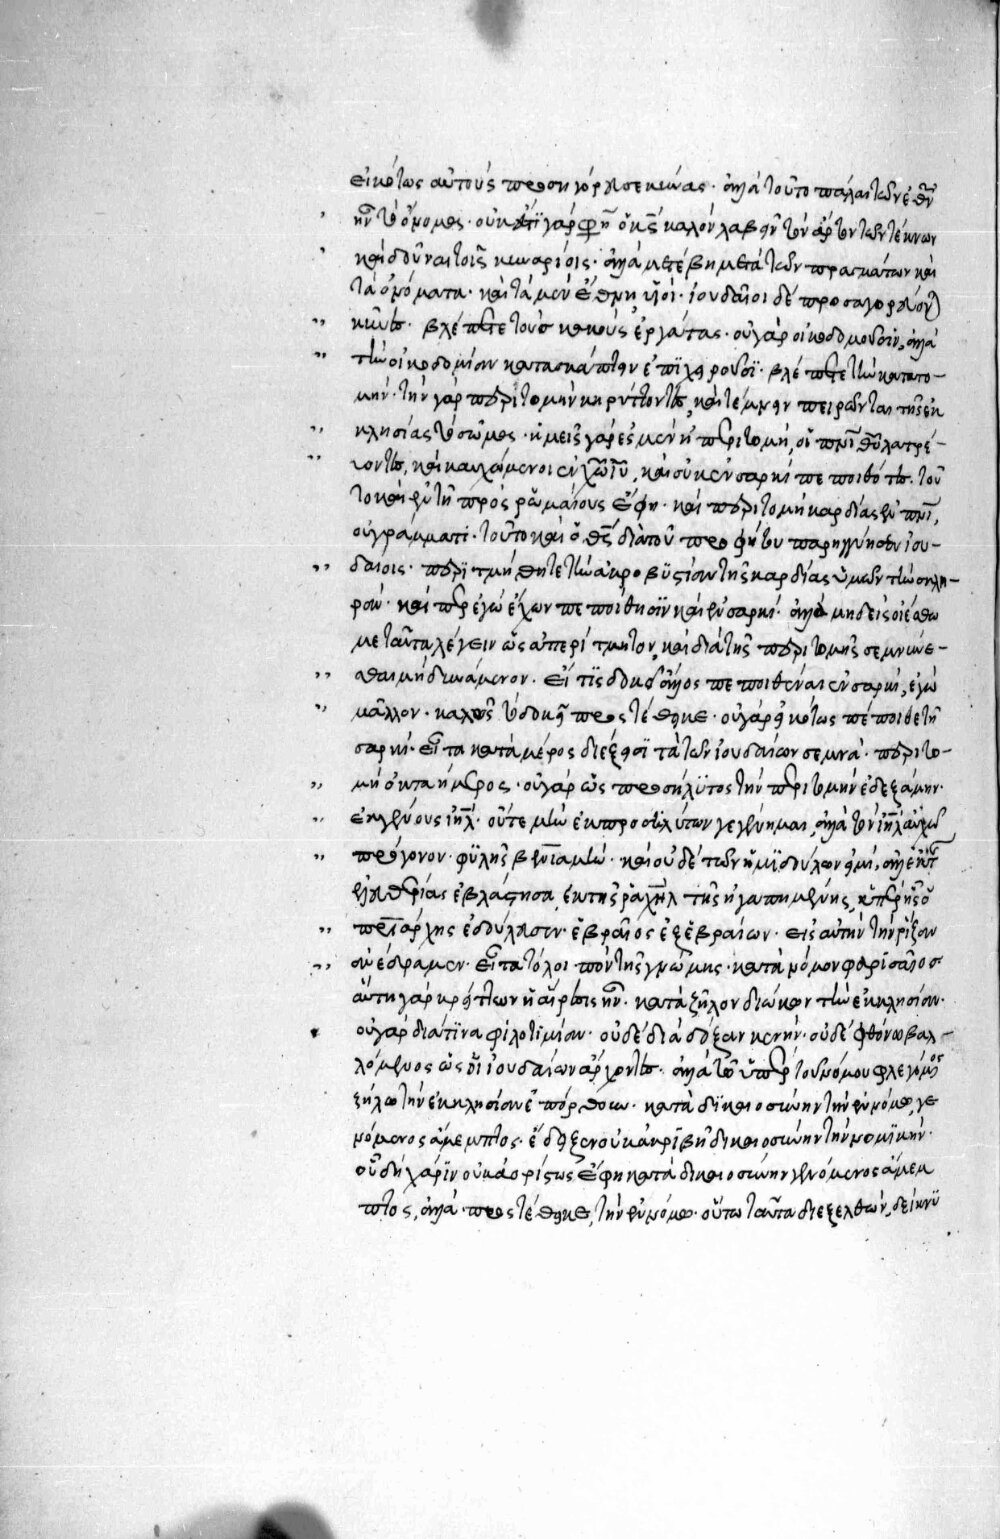 εἰκότως αὐτοὺς προσηγόρευσε κύνας· ἀλλὰ τοῦτο πάλαι τῶν ἐθνῶν
ἦν τὸ ὄνομα· οὐκ ἔστι γάρ φησιν ὁ κς καλὸν λαβεῖν τὸν ἄρτον τῶν τέκνων
καὶ δοῦναι τοῖς κυναρίοις· ἀλλὰ μετέβη μετὰ τῶν πραγμάτων καὶ
τὰ ὀνόματα· καὶ τὰ μὲν ἔθνη, υἱοί· ἰουδαῖοι δὲ προσαγορεύονται
κύνες· βλέπετε τοὺς κακοὺς ἐργάτας· οὐ γὰρ οἰκοδομοῦσιν, ἀλλὰ
τὴν οἰκοδομίαν κατασκάπτειν ἐπιχειροῦσι· βλέπετε τὴν κατατο-
μήν· τὴν γὰρ περιτομὴν κηρύττοντες, κατατέμνειν πειρῶνται τῆς ἐκ
κλησίας τὸ σῶμα· ἡμεῖς γάρ ἐσμεν ἡ περιτομή, οἱ πνι θυ λατρεύ-
οντες, καὶ καυχώμενοι ἐν χω ιυ, καὶ οὐκ ἐν σαρκὶ πεποιθότες· τοῦ
το καὶ ἐν τῇ πρὸς ῥωμαίους ἔφη· καὶ περιτομὴ καρδίας ἐν πνι,
οὐ γράμματι· τοῦτο καὶ ὁ θς διὰ τοῦ προφήτου παρηγγύησεν ἰου-
δαίοις· περιτμήθητε τὴν ἀκροβυστίαν τῆς καρδίας ὑμῶν τὴν σκλη-
ράν· καίπερ ἐγὼ ἔχων πεποίθησιν καὶ ἐν σαρκί· ἀλλὰ μηδεὶς οἰέσθω
με ταῦτα λέγειν ὡς ἀπερίτμητον, καὶ διὰ τῆς περιτομῆς σεμνύνε-
σθαι μὴ δυνάμενον· εἴ τις δοκεῖ ἄλλος πεποιθέναι ἐν σαρκί, ἐγὼ
μᾶλλον· καλῶς τὸ δοκεῖ προστέθεικε· οὐ γὰρ εἰκότως πέποιθε τῇ
σαρκί· εἶτα κατὰ μέρος διέξεισι τὰ τῶν ἰουδαίων σεμνά· περιτο-
μῇ ὀκταήμερος· οὐ γὰρ ὡς προσήλυτος τὴν περιτομὴν ἐδεξάμην·
ἐκ γένους ιηλ· οὔτε μὴν ἐκ προσηλύτων γεγένημαι, ἀλλὰ τὸν ιηλ αὐχῶ
πρόγονον· φυλῆς βενιαμίν· καὶ οὐδὲ τῶν ἡμιδούλων εἰμί, ἀλλ' ἐκ τῆς
ἐλευθερίας ἐβλάστησα, ἐκ τῆς ῥαχιὴλ τῆς ἠγαπημένης, ὑπὲρ ἧς ὁ
πατριάρχης ἐδούλευσεν· ἑβραῖος ἐξ ἑβραίων· εἰς αὐτὴν τὴν ῥίζαν
ἀνέδραμεν· εἶτα τὸ λοιπὸν τῆς γνώμης· κατὰ νόμον φαρισαῖος·
αὕτη γὰρ κρείττων ἡ αἵρεσις ἦν· κατὰ ζῆλον διώκων τὴν ἐκκλησίαν·
οὐ γὰρ διά τινα φιλοτιμίαν· οὐδὲ διὰ δόξαν κενήν· οὐδὲ φθόνῳ βαλ-
λόμενος ὡς οἱ ἰουδαίων ἄρχοντες· ἀλλὰ τῷ ὑπὲρ τοῦ νόμου φλεγόμενος
ζήλῳ τὴν ἐκκλησίαν ἐπόρθουν· κατὰ δικαιοσύνην τὴν ἐν νόμῳ, γε
νόμενος ἄμεμπτος· ἔδειξεν οὐκ ἀκριβῆ δικαιοσύνην τὴν νομικήν·
οὗ δὴ χάριν οὐκ ἀορίστως ἔφη κατὰ δικαιοσύνην γενόμενος ἄμεμ
πτος, ἀλλὰ προστέθεικε, τὴν ἐν νόμῳ· οὕτω ταῦτα διεξελθών, δείκνυ